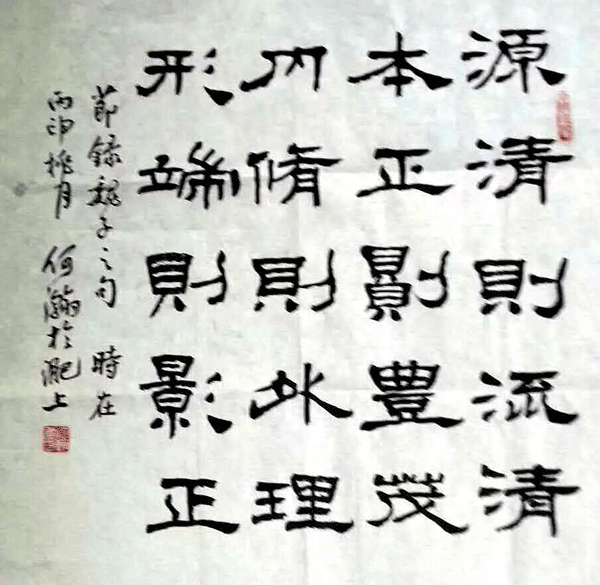 源清則流清
本正則豐茂
內脩則外理
形端則影正
節錄魏子之句 時在
丙申桃月 何瀚於淝上